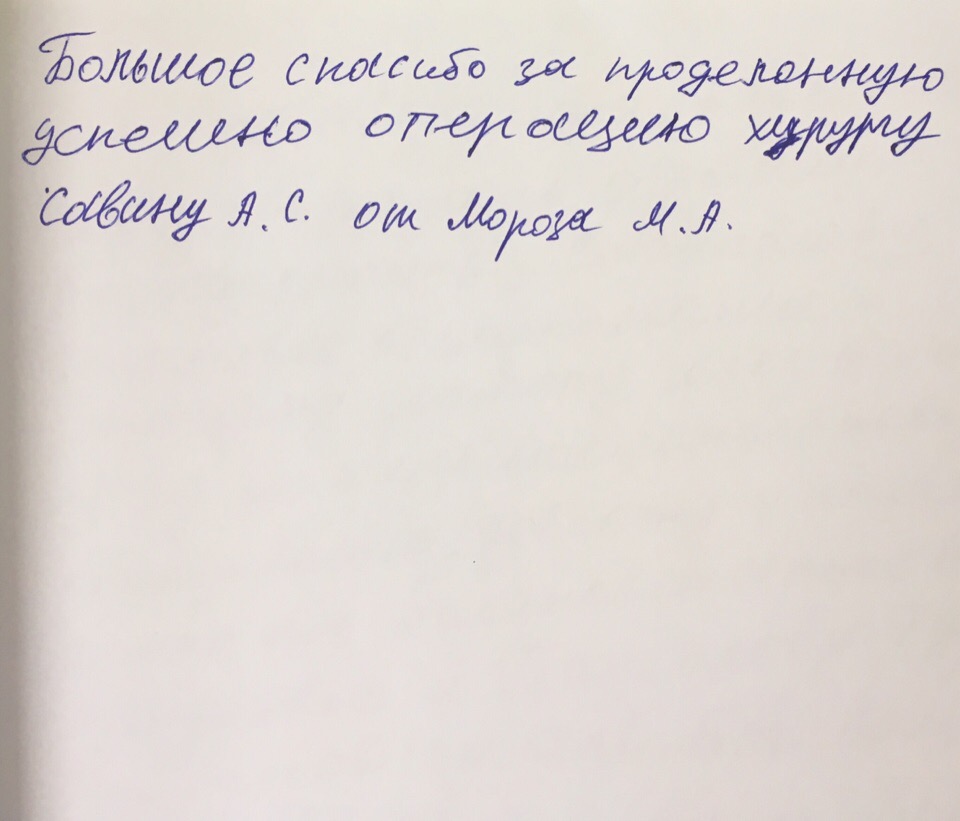 Большое спасибо за проделанную
успешно операцию хирургу
Савину А.С. от Мороза М.А.